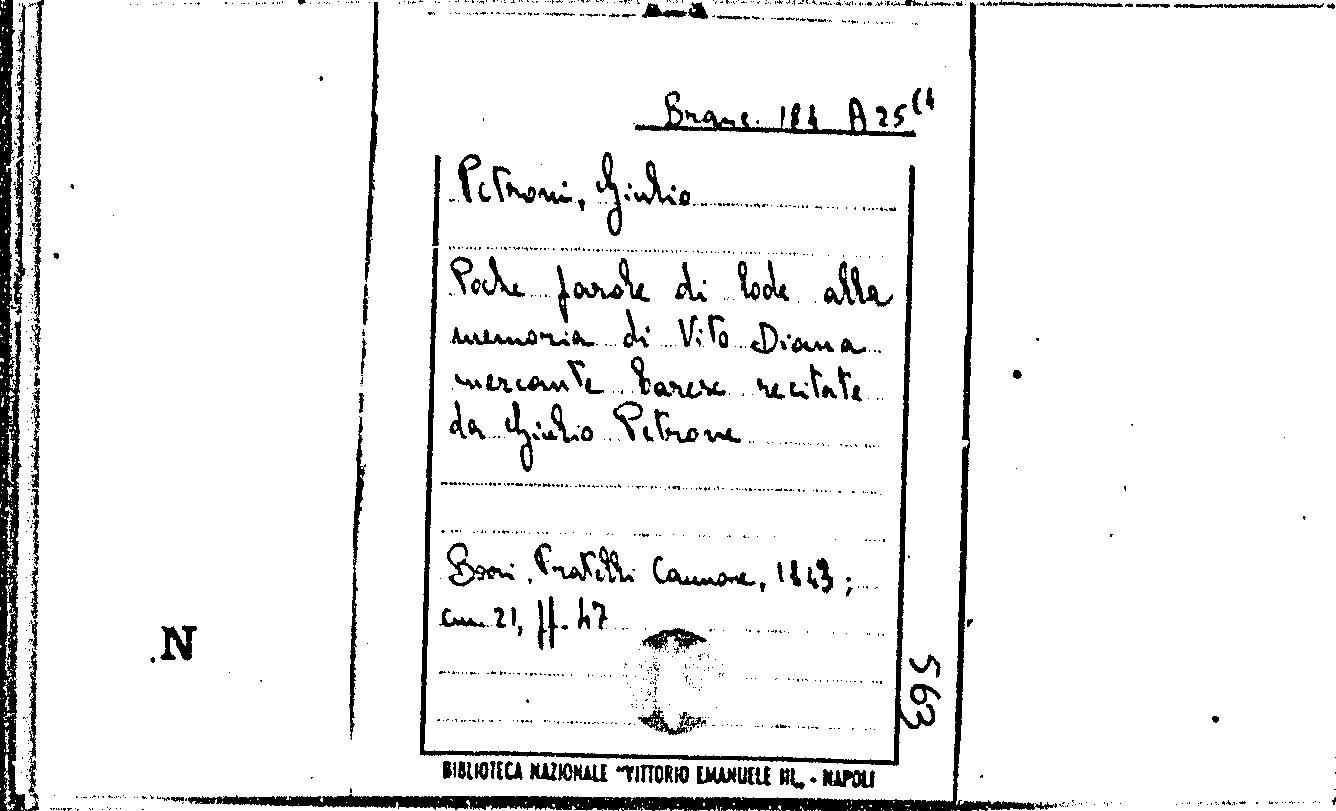 Branc. 184 A 25(4
Petroni, Giulio
Poche parole di lode alla
memoria di Vito Diana
mercante barese recitate
da Giulio Petrone
Bari, Fratelli Cannone, 1843;
cm. 21, ff. 47
563
N
BIBLIOTECA NAZIONALE "VITTORIO EMANUELE III„ - NAPOLI